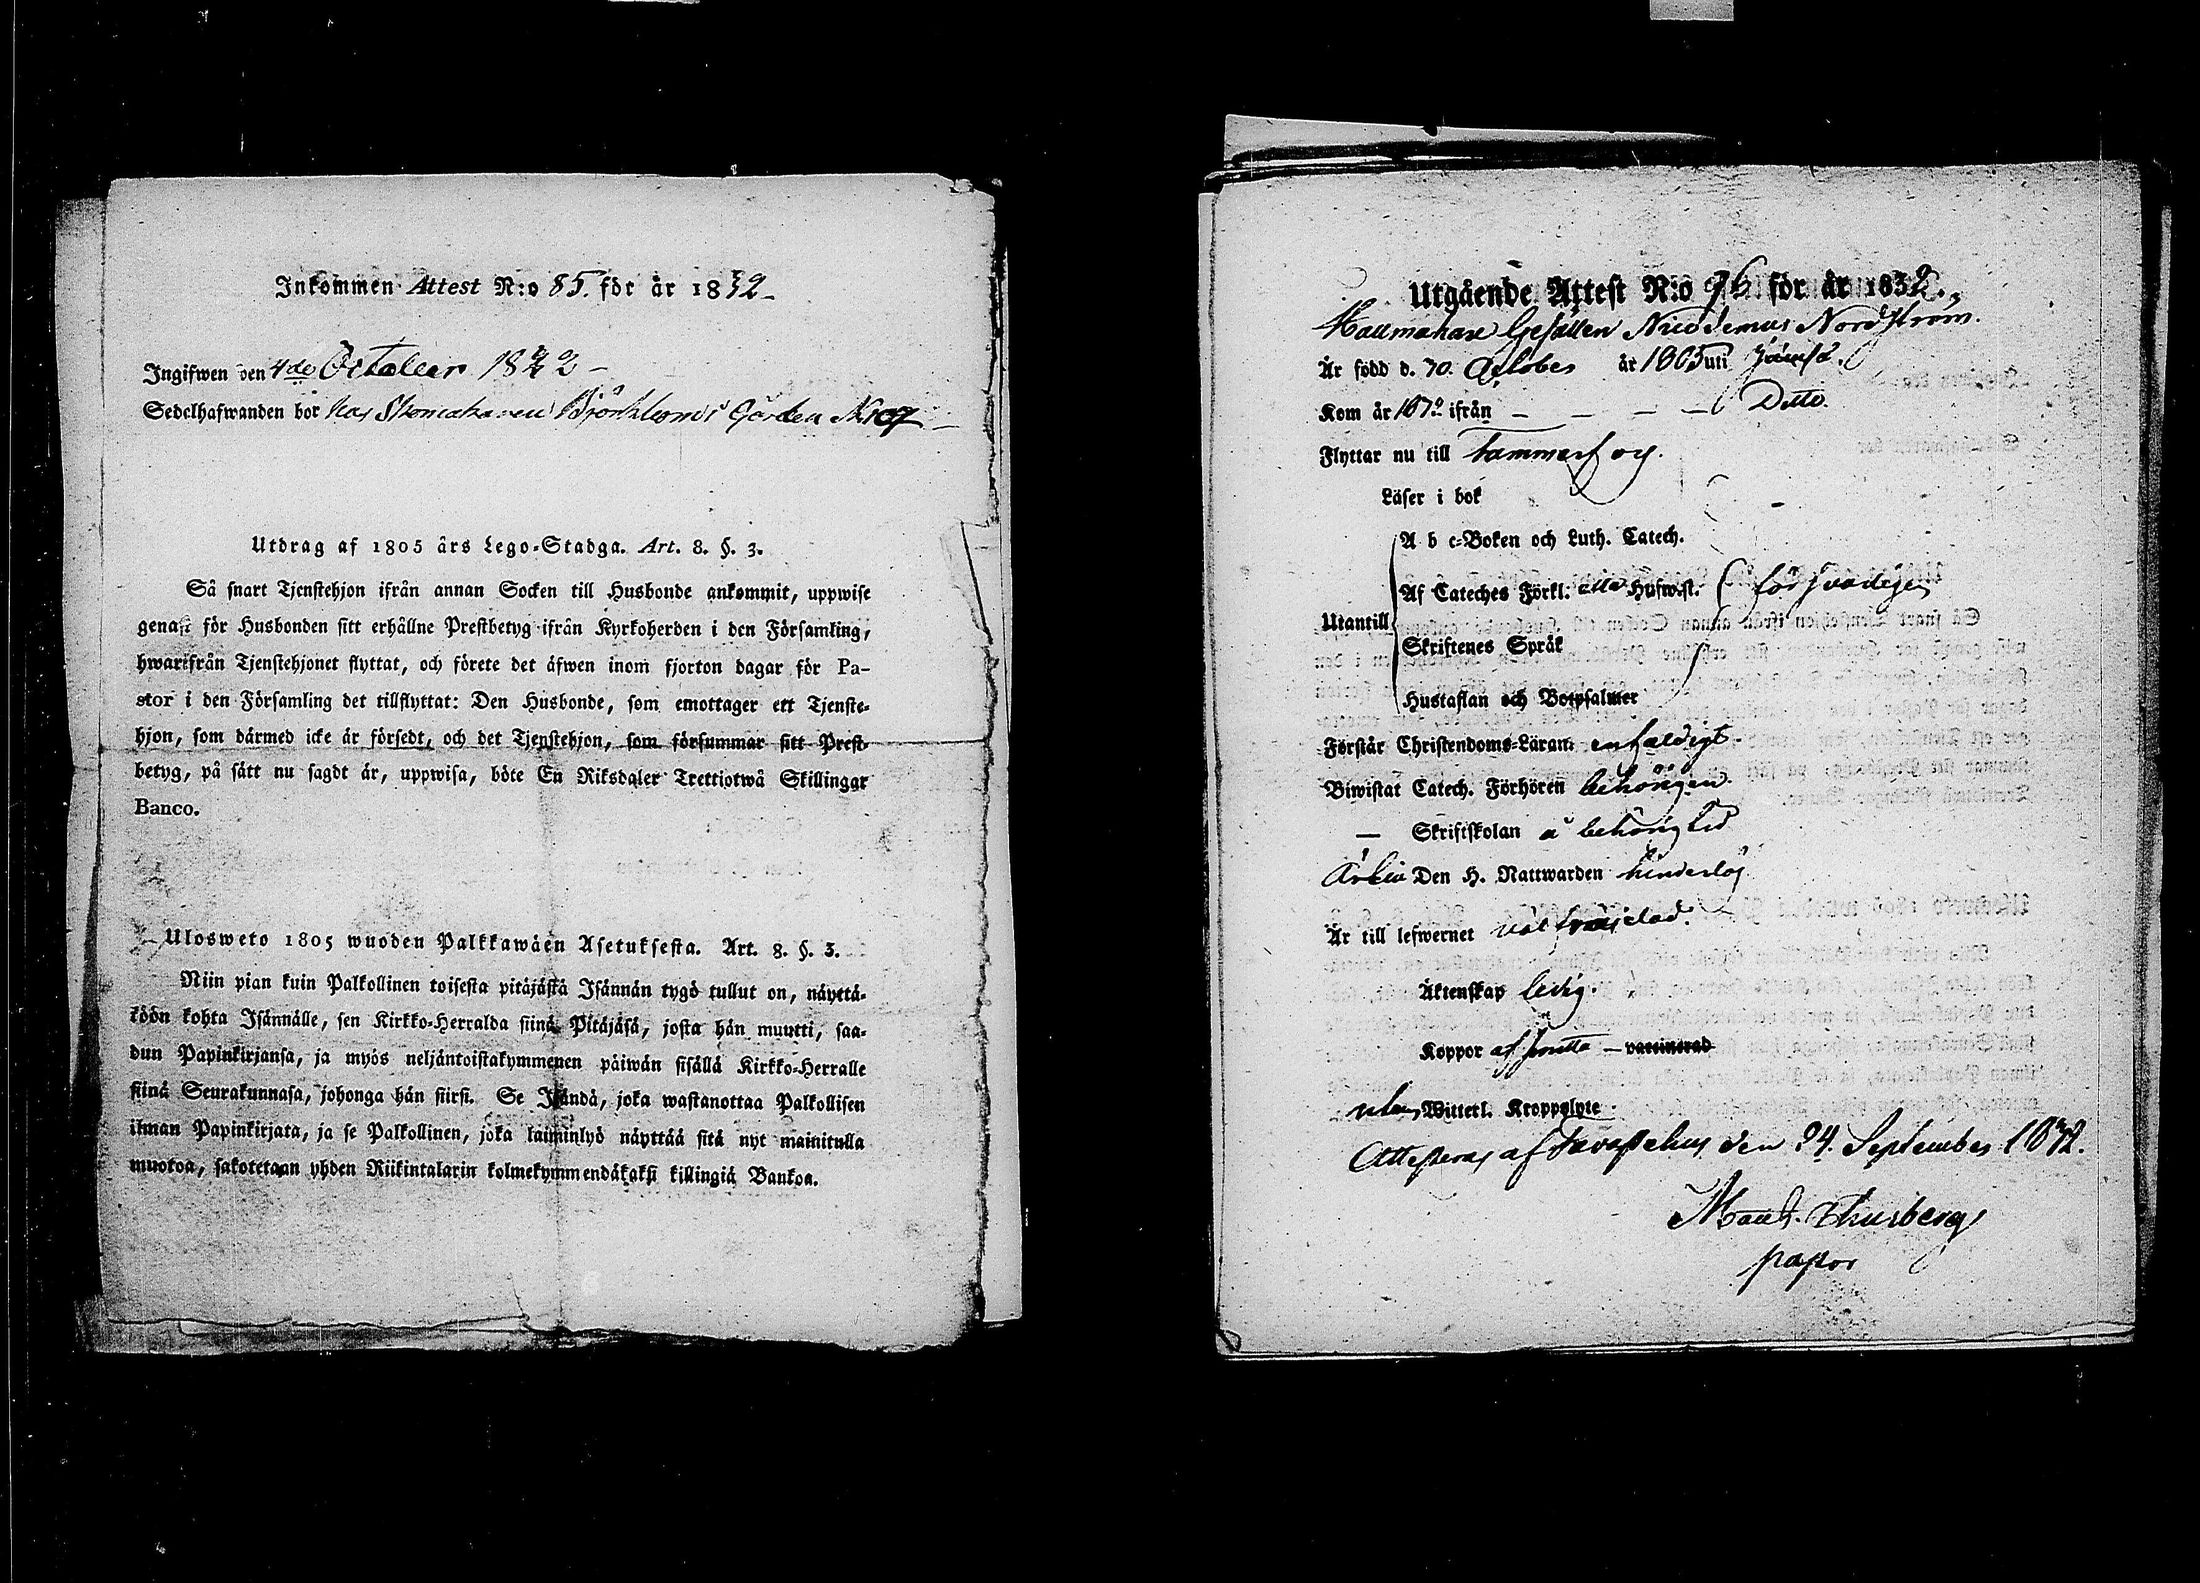 Inkommen Attest N:o 85. för år 1832
Ingifwen den 4de October 1832
Sedelhafwanden bor hos Skomakaren Björkloms Gården N:o
Utdrag af 1805 års Lego-Stadga. Art. 8. §. 3.
Så snart Tjenstehjon ifrån annan Socken till Husbonde ankommit, uppwise
genast för Husbonden sitt erhållne Prestbetyg ifrån Kyrkoherden i den Församling,
hwarifrån Tjenstehjonet flyttat, och förete det äfwen inom fjorton dagar för Pa-
stor i den Församling det tillflyttat: Den Husbonde, som emottager ett Tjenste-
hjon, som därmed icke är försedt, och det Tjenstehjon, som försummar sitt Prest-
betyg, på sätt nu sagdt är, uppwisa, böte En Riksdaler Trettiotwå Skillingar
Banco.
Ulosweto 1805 wuoden Palkkawäen Asetuksesta. Art. 8. §. 3.
Niin pian kuin Palkollinen toisesta pitäjästä Isännän tygö tullut on, näyttä-
köön kohta Isännälle, sen Kirkko-Herralda siinä Pitäjäsä, josta hän muutti, saa-
dun Papinkirjansa, ja myös neljäntoistakymmenen päiwän sisällä Kirkko-Herralle
siinä Seurakunnasa, johonga hän siirsi. Se Isändä, joka wastanottaa Palkollisen
ilman Papinkirjata, ja se Palkollinen, joka laiminlyö näyttää sitä nyt mainitulla
muotoa, sakotetaan yhden Riikintalarin kolmekymmendäkaksi killingiä Bankoa.
Utgående Attest N:o 96 för år 1832.
Gesällen Nicodemus Nordström.
Är född d. 30. October år 1805 uti Jämsä.
Kom år ifrån — — — — Ditto.
Flyttar nu till Tammerfors.
Läser i bok
A b c-Boken och Luth. Catech.
Af Cateches Förkl: eller Hufwst. försvarligen
Utantill
Skriftenes Språk
Hustaflan och Botpsalmer
Förstår Christendoms-Läran enfaldigt.
Biwistat Catech. Förhören behörigen.
— Skriftskolan å behörig tid
Är till Den H. Nattwarden hinderlös
Är till lefwernet väl frejdad.
Äktenskap ledig.
Koppor haft — vaccinerad
utan Witterl. Kroppslyte.
Attesteras af Tavastehus den 24. September 1832.
Thusberg
pastor